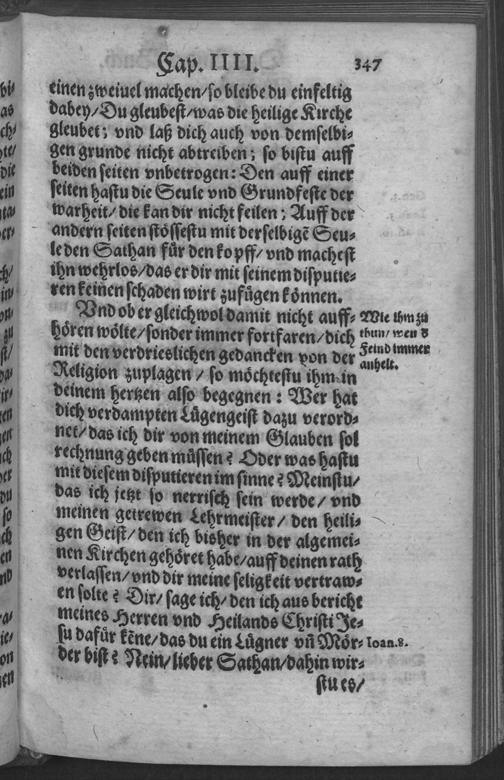 Cap. IIII. 347
einen zweiuel machen/so bleibe du einfeltig
dabey/Du gleubest/was die heilige Kirche
gleubet; vnd laß dich auch von demselbi-
gen grunde nicht abtreiben; so bistu auff
beiden seiten vnbetrogen: Den auff einer
seiten hastu die Seule vnd Grundfeste der
warheit/die kan dir nicht feilen; Auff der
andern seiten stössestu mit derselbigē Seu-
le den Sathan für den kopff/vnd machest
ihn wehrlos/das er dir mit seinem disputie-
ren keinen schaden wirt zufügen können.
Vnd ob er gleichwol damit nicht auff-
hören wölte/sonder immer fortfaren/dich
mit den verdrieslichen gedancken von der
Religion zuplagen/so möchtestu ihm in
deinem hertzen also begegnen: Wer hat
dich verdampten Lügengeist dazu verord-
net/das ich dir von meinem Glauben sol
rechnung geben müssen? Oder was hastu
mit diesem disputieren im sinne? Meinstu/
das ich jetzt so nerrisch sein werde/vnd
meinen getrewen Lehrmeister/den heili-
gen Geist/den ich bisher in der algemei-
nen Kirchen gehöret habe/auff deinen rath
verlassen/vnd dir meine seligkeit vertraw-
en solte? Dir/sage ich/den ich aus bericht
meines Herren vnd Heilands Christi Je-
su dafür kēne/das du ein Lügner vn̄ Mör-
der bist? Nein/lieber Sathan/dahin wir-
stu es/
Wie ihm zu
thun/wen d̕
Feind immer
anhelt.
Ioan.8.